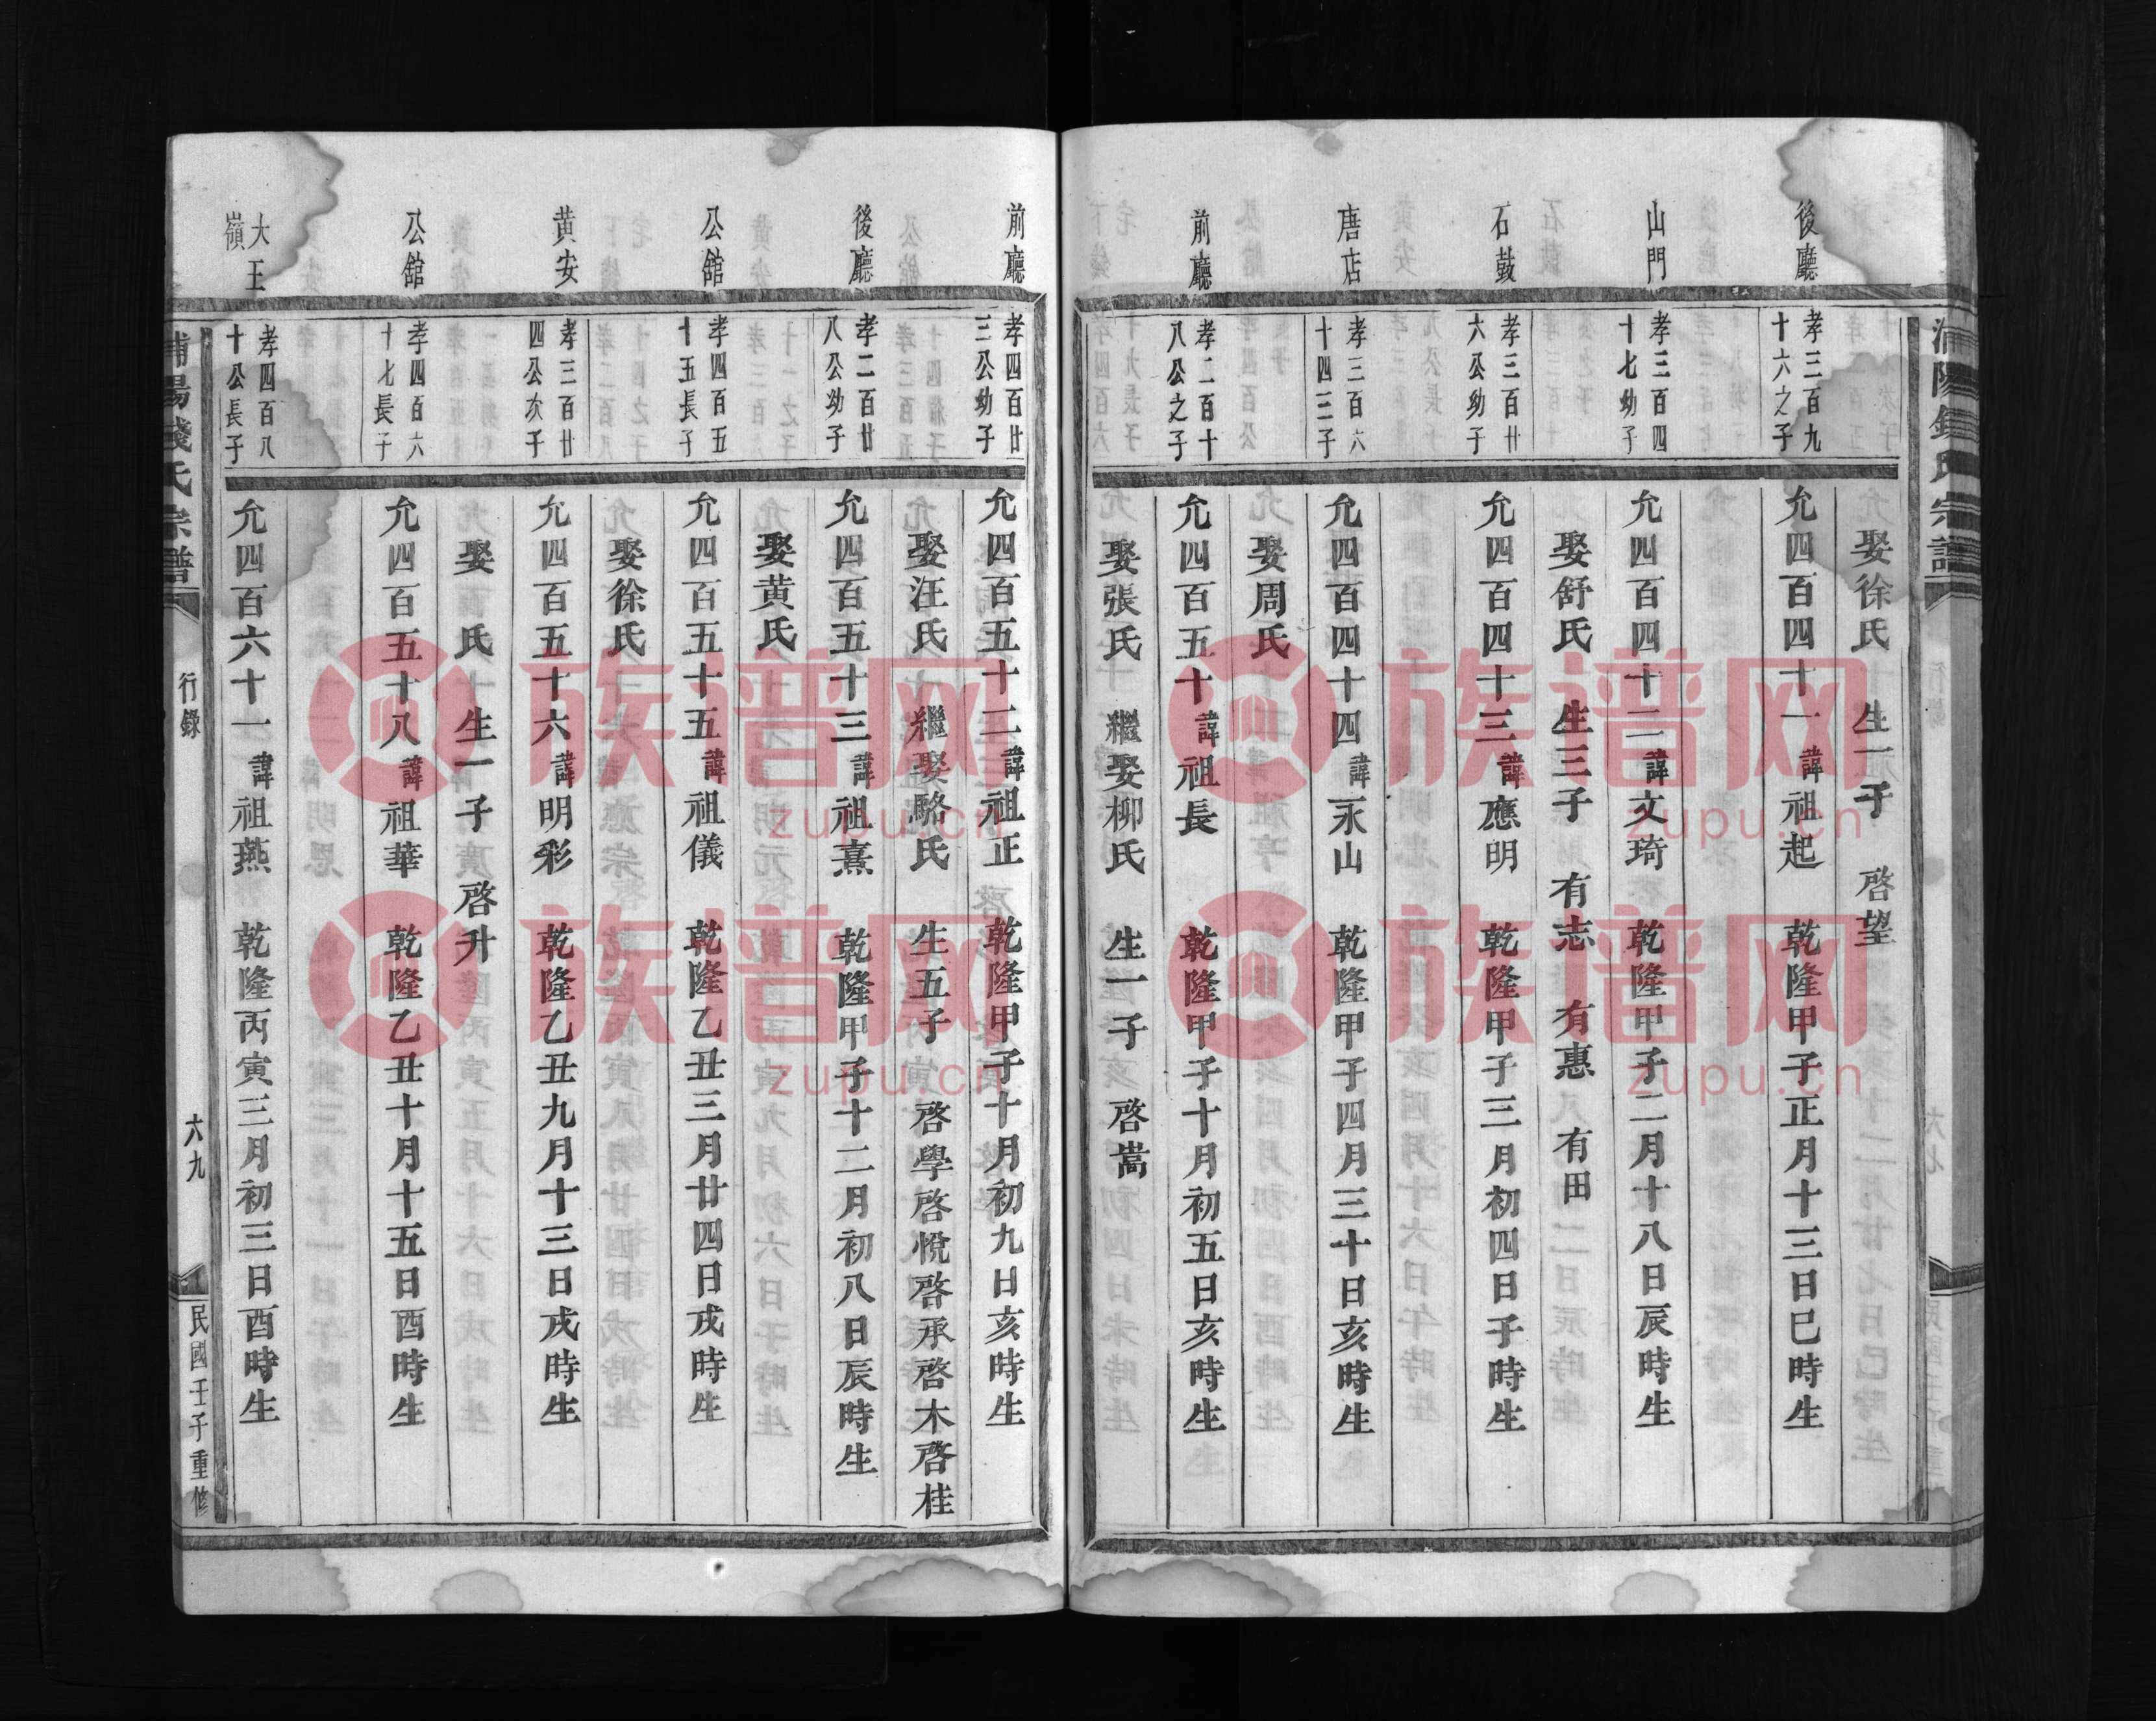 浦陽錢氏宗譜
娶徐氏 生一子 啓望
後廳
孝三百九
十六之子
允四百四十一諱祖起 乾隆甲子正月十三日巳時生
山門
孝三百四
十七幼子
允四百四十二諱文琦 乾隆甲子二月十八日辰時生
娶舒氏 生三子 有志 有惠 有田
石鼓
孝三百廿
六公幼子
允四百四十三諱應明 乾隆甲子三月初四日子時生
唐店
孝三百六
十四三子
允四百四十四諱永山 乾隆甲子四月三十日亥時生
娶周氏
前廳
孝二百十
八公之子
允四百五十諱祖長 乾隆甲子十月初五日亥時生
娶張氏 繼娶柳氏 生一子 啓嵩
前廳
孝四百廿
三公幼子
允四百五十二諱祖正 乾隆甲子十月初九日亥時生
娶汪氏 繼娶駱氏 生五子 啓學啓悅啓承啓木啓桂
後廳
孝二百廿
八公幼子
允四百五十三諱祖熹 乾隆甲子十二月初八日辰時生
娶黄氏
公館
孝四百五
十五長子
允四百五十五諱祖儀 乾隆乙丑三月廿四日戌時生
娶徐氏
黄安
孝三百廿
四公次子
允四百五十六諱明彩 乾隆乙丑九月十三日戌時生
娶 氏 生一子 啓升
公舘
孝四百六
十七長子
允四百五十八諱祖華 乾隆乙丑十月十五日酉時生
大王
嶺
孝四百八
十公長子
允四百六十一諱祖燕 乾隆丙寅三月初三日酉時生
浦陽錢氏宗譜
行錄
六九
民國壬子重修
族谱网
zupu.cn
族谱网
zupu.cn
族谱网
zupu.cn
族谱网
zupu.cn